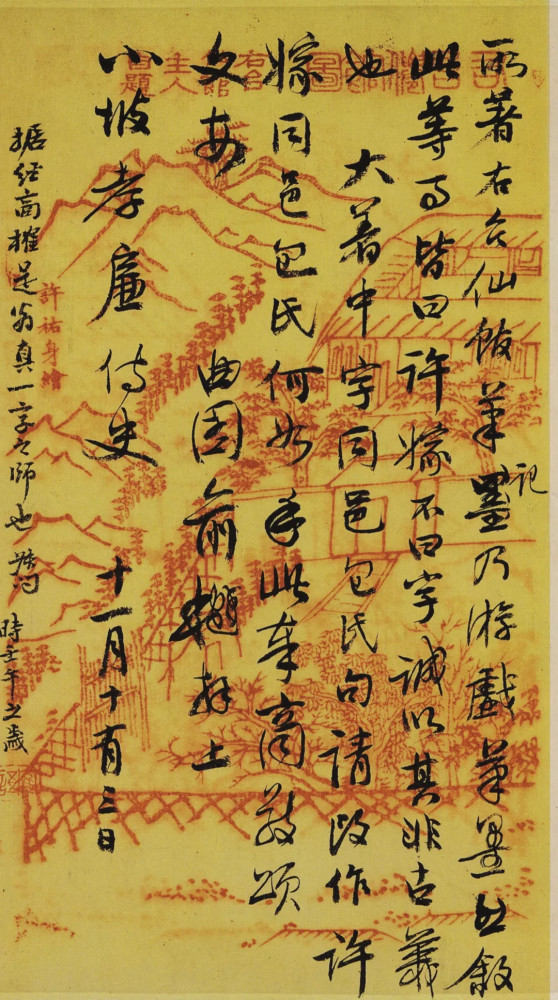 所著右台仙館筆墨乃游戲筆墨然叙
記
此等事皆曰許嫁不曰字誠以其非古義
也 大著中字同邑包氏句請改作許
嫁同邑包氏何如手此奉商敬頌
文安 曲園俞樾拜上
小坡孝廉侍史 十一月十有三日
據經商榷是翁真一字之師也 叔問 時壬午之歲
右台
仙館
主人
自題
許祐身繪